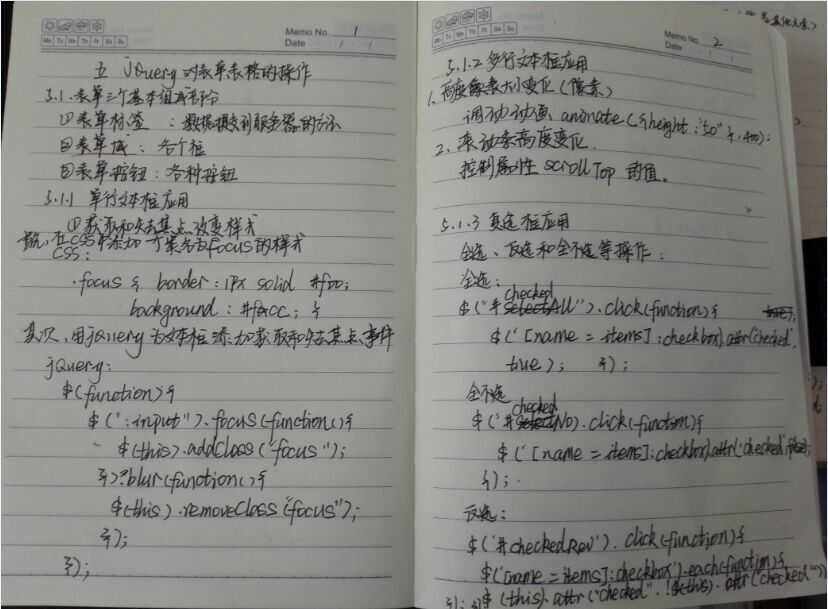 Memo No. 1
Mo Tu We Th Fr Sa Su
Date / /
五 jQuery对表单表格的操作
5.1.表单三个基本组成部分
①表单标签 : 数据提交到服务器的方法
②表单域 : 各个框
③表单按钮 : 各种按钮
5.1.1 单行文本框应用
①获取和失去焦点改变样式
首先,在CSS中添加一个类名为focus的样式
CSS:
.focus { border: 1px solid #f00;
background: #fcc; }
其次,用jQuery为文本框添加获取和失去焦点事件
jQuery:
$(function){
$(":input").focus(function(){
$(this).addClass("focus");
}).blur(function(){
$(this).removeClass("focus");
});
});
Memo No. 2
Mo Tu We Th Fr Sa Su
Date / /
5.1.2 多行文本框应用
1.高度 大小变化(像素)
调动动画 animate({height:"50"},400);
2.滚动条高度变化.
控制属性 scrollTop 的值。
5.1.3 复选框应用
全选、反选和全不选等操作:
全选: checked
$("#selectAll").click(function){
$('[name=items]:checkbox).attr('checked',
true); });
全不选 checked
$('#selectNo).click(function){
$('[name=items]:checkbox).attr('checked',false);
});
反选:
$('#checkedRev').click(function){
$('[name=items]:checkbox').each(function){
$(this).attr("checked",!$(this).attr("checked"))